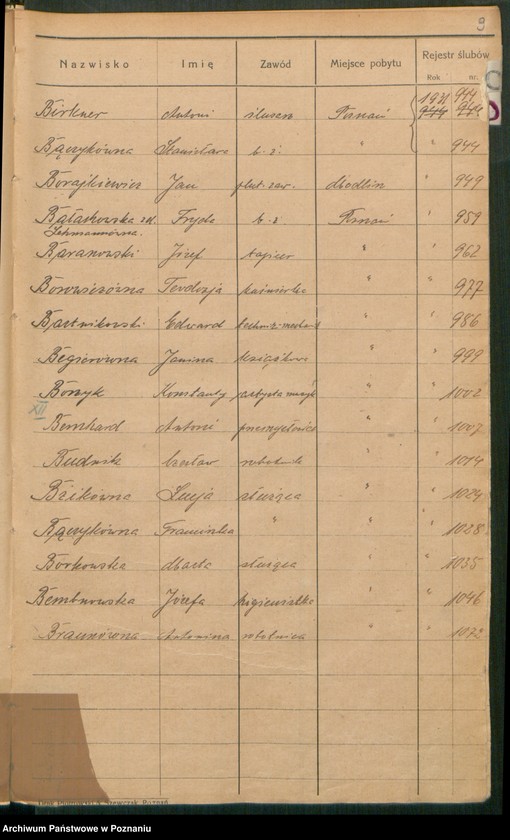 9
Nazwisko Imię Zawód Miejsce pobytu Rejestr ślubów
Rok nr.
Birkner Antoni ślusarz Poznań 1931 944
Bączykówna Stanisława b. z. " " 944
Borajkiewicz Jan plut. zaw. " 949
Bałaskowska zd. Fryda b. z. Poznań " 959
Lehmannówna.
Baranowski Józef tapicer " " 962
Borowiczówna Teodozja " " 977
Bartnikowski Edward " " 986
Begierówna Janina " " 999
Borzyk Konstanty artysta muzyk " " 1002
XII
Bernhard Antoni przemysłowiec " " 1007
Budnik Czesław robotnik " " 1014
Bzikówna Łucja służąca " " 1024
Bączykówna Franciszka " " " 1028
Borkowska służąca " " 1035
Bembnowska Józefa higienistka " " 1046
Braunówna Antonina robotnica " " 1072
Archiwum Państwowe w Poznaniu